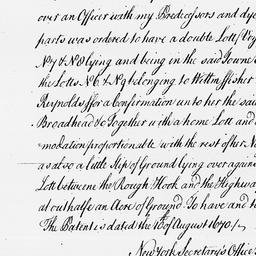 over an Officer with my Predecessors and dye
parts was ordered to have a double Lott
No 7 & No 8 lying and being in the said Towne
the Lotts No 6 & No 9 belonging to
Reynolds for a Confirmation unto her the said
Broadhead &c Together with a home Lott and
modation proportionable with the rest of her
as also a little Slip of Ground lying over again
Lott betweene the Rough Hook and the Highway
at out halfe an Acre of Ground To have and to
The Patent is dated the 16 of August 1670
New York Secretary's Office